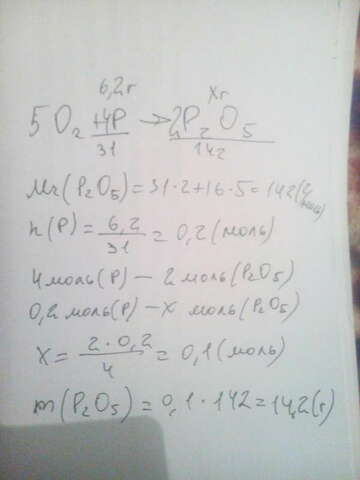 6,2г xг
5O₂ + 4P → 2P₂O₅
31 142
Mr(P₂O₅) = 31·2+16·5 = 142(г/моль)
n(P) = 6,2/31 = 0,2(моль)
4моль(P) — 2моль(P₂O₅)
0,2моль(P) — x моль(P₂O₅)
x = 2·0,2/4 = 0,1(моль)
m(P₂O₅) = 0,1·142 = 14,2(г)